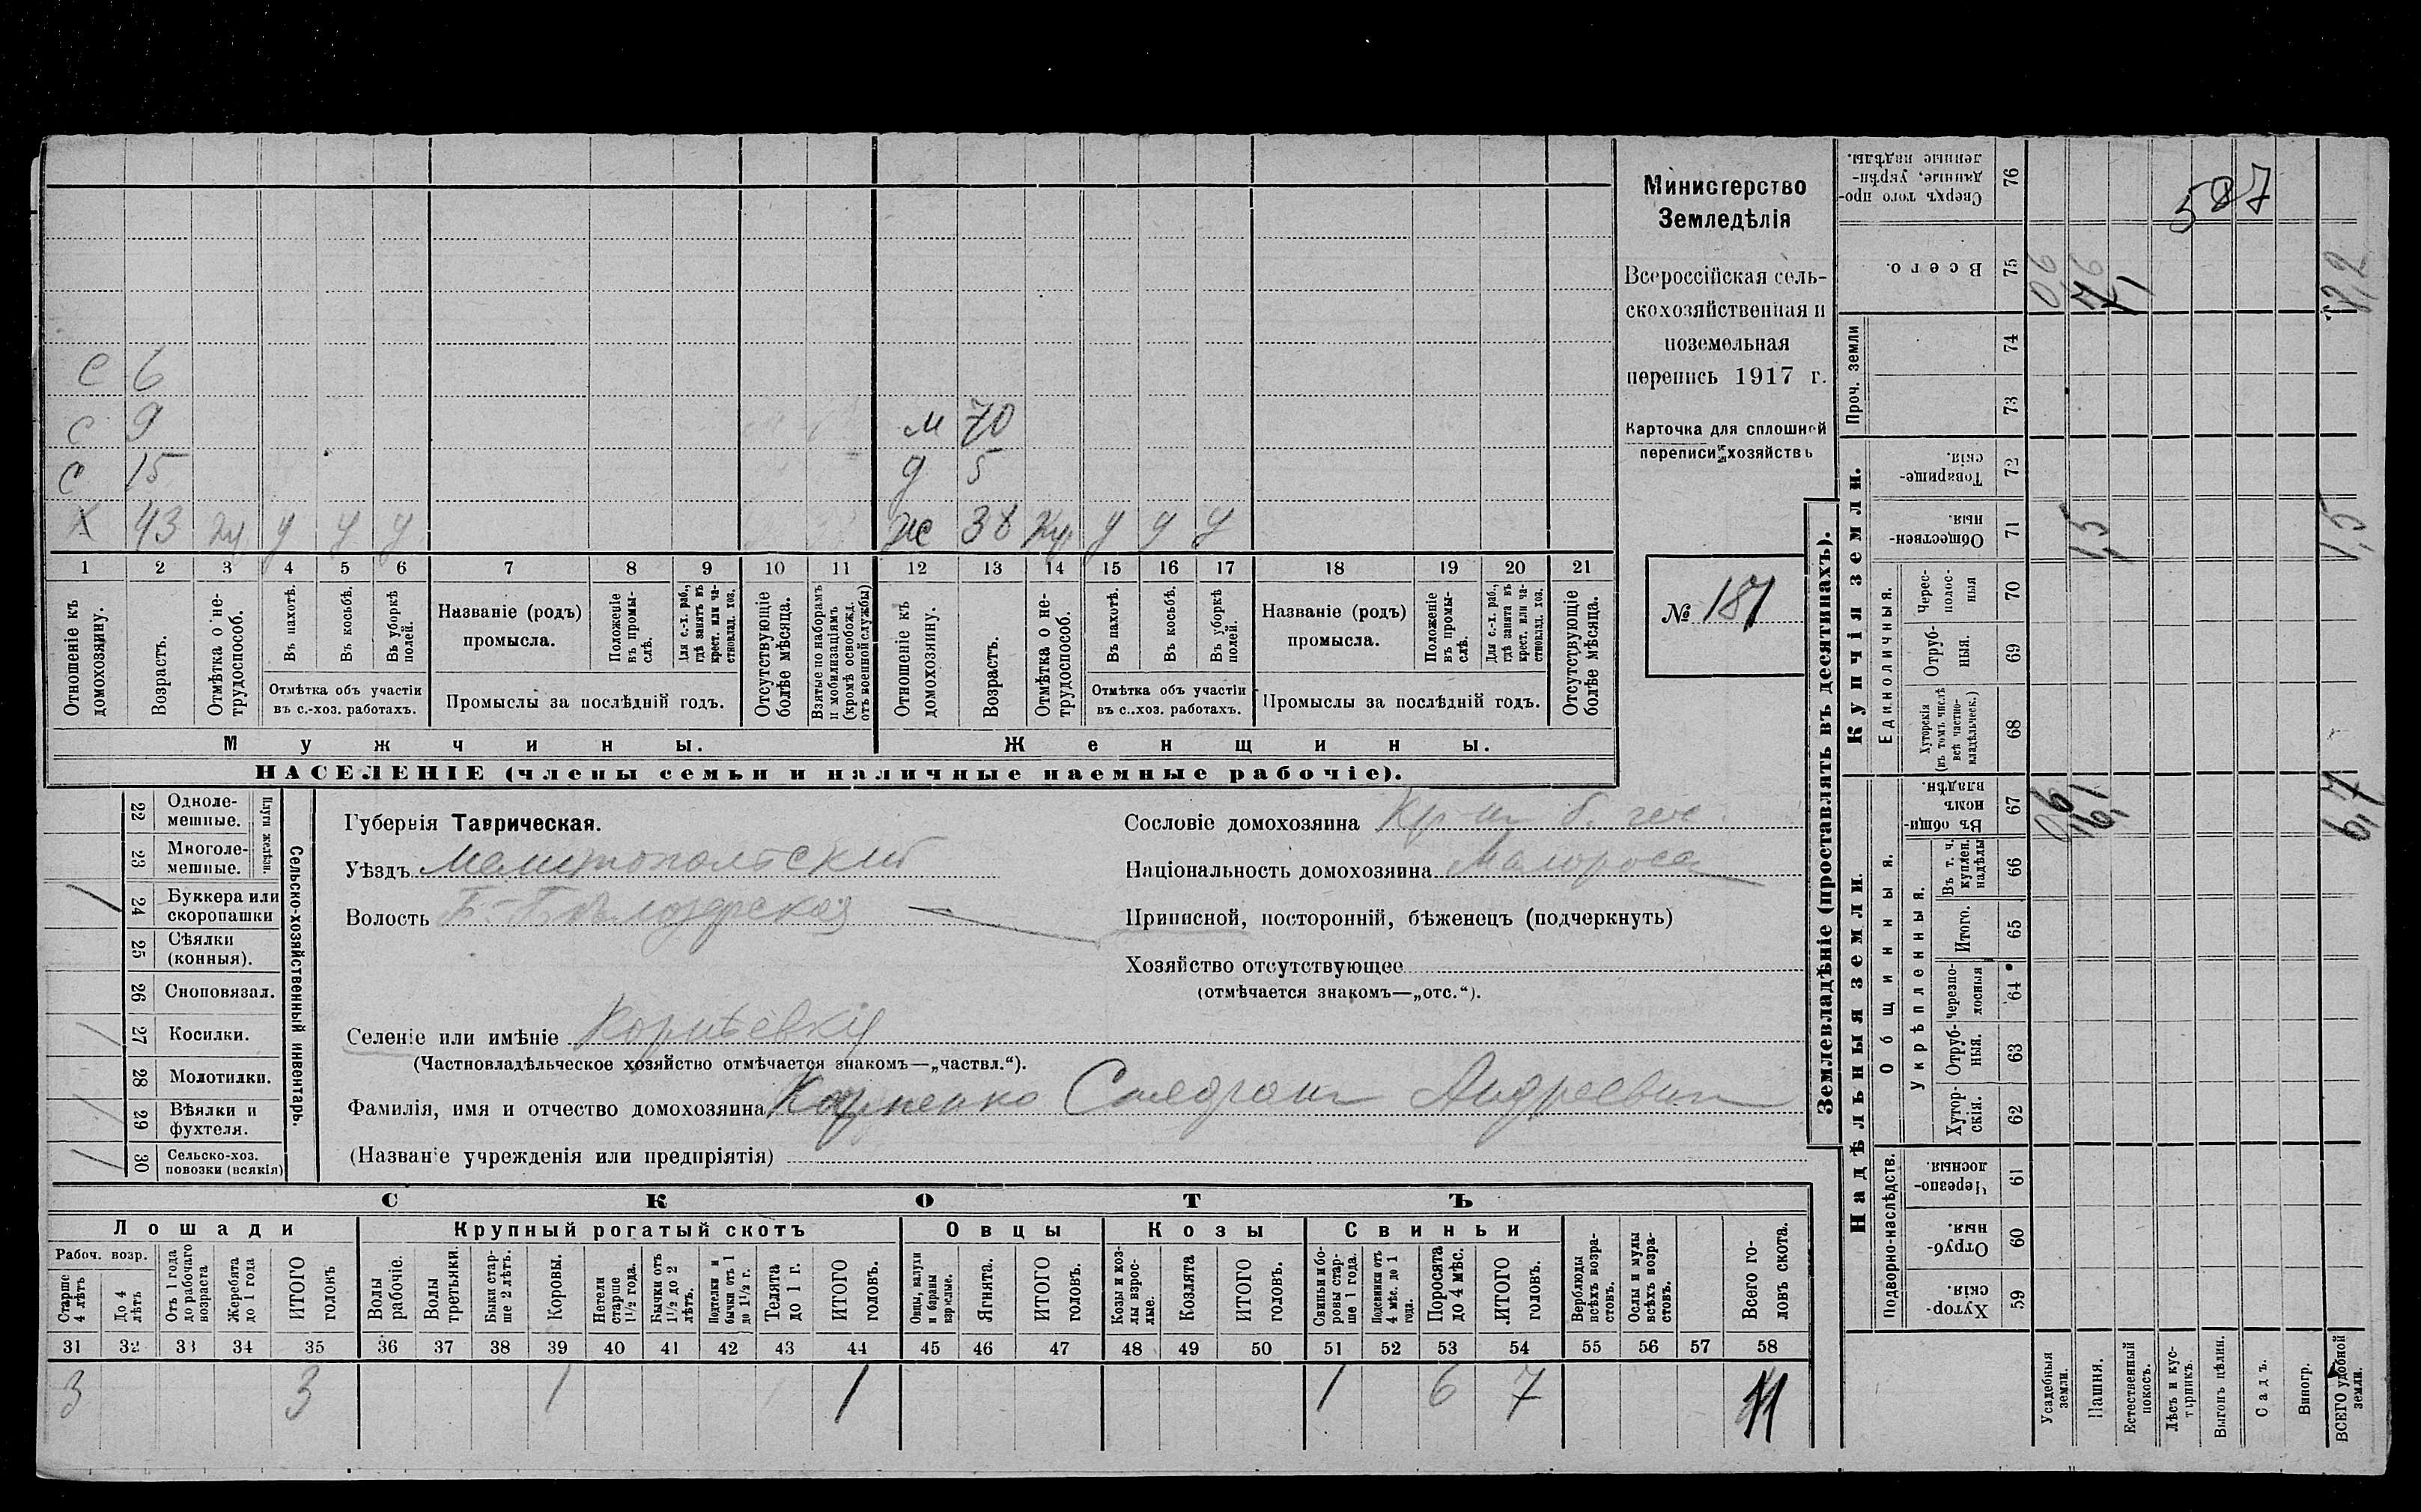 Министерство
Земледѣлія
Всероссійская сель-
скохозяйственная и
поземельная
перепись 1917 г.
Карточка для сплошной
переписи хозяйствъ
№ 187
С 6
С 9
С 15
Х 43 у у у
м 70
д 5
ж 38 у у у
1 2 3 4 5 6 7 8 9 10 11 12 13 14 15 16 17 18 19 20 21
Отношеніе къ домохозяину.
Возрастъ.
Отмѣтка о не-трудоспособ.
Въ пахотѣ.
Въ косьбѣ.
Въ уборкѣ полей.
Отмѣтка объ участіи
въ с.-хоз. работахъ.
Названіе (родъ)
промысла.
Положеніе въ промы-слѣ.
Для с.-х. раб., гдѣ занятъ въ крест. или ча-стновлад. хоз.
Промыслы за послѣдній годъ.
Отсутствующіе болѣе мѣсяца.
Взятые по наборамъ и мобилизаціямъ (кромѣ освобожд. отъ военной службы)
Отношеніе къ домохозяину.
Возрастъ.
Отмѣтка о не-трудоспособ.
Въ пахотѣ.
Въ косьбѣ.
Въ уборкѣ полей.
Отмѣтка объ участіи
въ с.-хоз. работахъ.
Названіе (родъ)
промысла.
Положеніе въ промы-слѣ.
Для с.-х. раб., гдѣ занята въ крест. или ча-стновлад. хоз.
Промыслы за послѣдній годъ.
Отсутствующіе болѣе мѣсяца.
Мужчины.
Женщины.
НАСЕЛЕНІЕ (члены семьи и наличные наемные рабочіе).
Сельско-хозяйственный инвентарь.
Плуги желѣзн.
22 Одноле-мешные.
23 Многоле-мешные.
1 24 Буккера или скоропашки
25 Сѣялки (конныя).
26 Сноповязал.
1 27 Косилки.
28 Молотилки.
1 29 Вѣялки и фухтеля.
1 30 Сельско-хоз. повозки (всякія)
Губернія Таврическая.
Уѣздъ Мелитопольский
Волость Б.-Бѣлозерская
Селеніе или имѣніе
(Частновладѣльческое хозяйство отмѣчается знакомъ—„частвл.“).
Фамилія, имя и отчество домохозяина Карпенко Андреевич
(Названіе учрежденія или предпріятія)
Сословіе домохозяина Кр-нъ б. гос.
Національность домохозяина Малоросс
Приписной, посторонній, бѣженецъ (подчеркнуть)
Хозяйство отсутствующее
(отмѣчается знакомъ—„отс.“).
СКОТЪ
Лошади
Крупный рогатый скотъ
Овцы
Козы
Свиньи
Рабоч. возр.
Старше 4 лѣтъ
До 4 лѣтъ
Отъ 1 года до рабочаго возраста
Жеребята до 1 года
ИТОГО головъ
Волы рабочіе.
Волы третьяки.
Быки стар-ше 2 лѣтъ.
Коровы.
Нетели старше 1½ года.
Бычки отъ 1½ до 2 лѣтъ.
Подтелки и бычки отъ 1 до 1½ г.
Телята до 1 г.
ИТОГО головъ.
Овцы, валухи и бараны взрослые.
Ягнята.
ИТОГО головъ.
Козы и коз-лы взрос-лые.
Козлята
ИТОГО головъ.
Свиньи и бо-ровы стар-ше 1 года.
Подсвинки отъ 4 мѣс. до 1 года.
Поросята до 4 мѣс.
ИТОГО головъ.
Верблюды всѣхъ возра-стовъ.
Ослы и мулы всѣхъ возра-стовъ.
Всего го-ловъ скота.
31 32 33 34 35 36 37 38 39 40 41 42 43 44 45 46 47 48 49 50 51 52 53 54 55 56 57 58
3 3 1 1 1 6 7 11
Землевладѣніе (проставлять въ десятинахъ).
Надѣльныя земли.
Купчія земли.
Проч. земли
Подворно-наслѣдств.
Общинныя.
Укрѣпленныя.
Единоличныя.
Хутор-скія. 59
Отруб-ныя. 60
Черезпо-лосныя. 61
Хутор-скія. 62
Отруб-ныя. 63
Черезпо-лосныя 64
Итого. 65
Въ т. ч. куплен. надѣлы 66
Въ общи-номъ владѣн. 67
Хуторскія (въ томъ числѣ всѣ частно-владѣльческ.) 68
Отруб-ныя. 69
Черес-полос-ныя 70
Обществен-ныя. 71
Товарище-скія. 72
73
74
Всего. 75
Сверхъ того про-данные, укрѣп-ленные надѣлы. 76
Усадебныя земли.
Пашня.
Естественный покосъ.
Лѣсъ и кус-тарникъ.
Выгонъ цѣлин.
Садъ.
Виногр.
ВСЕГО удобной земли.
06
6,1
6,7
1,5
1,5
06
8,2
587